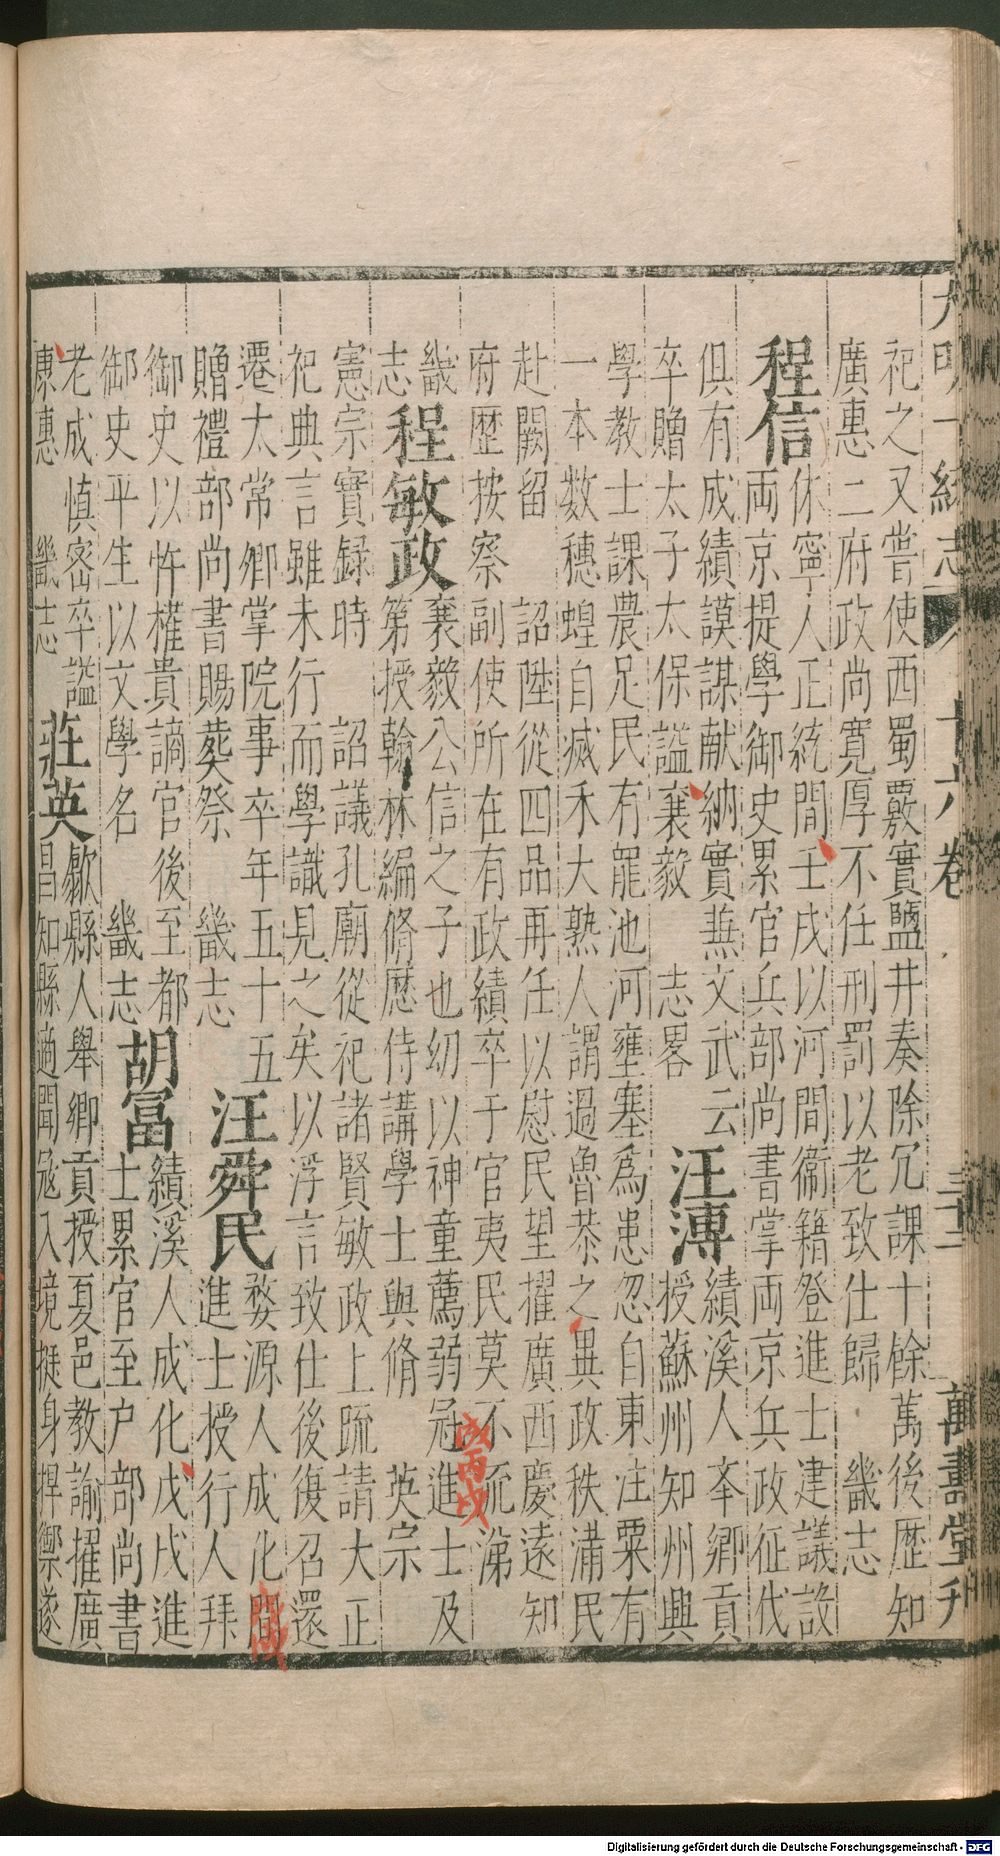 大明一統志 十六卷 三十二 萬壽堂刋
祀之又嘗使西蜀覈實鹽井奏除冗課十餘萬後歴知
廣惠二府政尚寛厚不任刑罰以老致仕歸 畿志
程信 休寧人正統間壬戌以河間衞籍登進士建議設
両京提學御史累官兵部尚書掌両京兵政征伐
俱有成績謨謀献納實蕪文武云
卒贈太子太保謚襄毅 志畧
汪溥 績溪人夲鄉貢
授蘇州知州興
學教士課農足民有罷池河壅塞爲患忽自東注粟有
一本數穗蝗自㓕禾大熟人謂過魯恭之異政秩滿民
赴闕留 詔陞從四品再任以慰民望擢廣西慶遠知
府歴按察副使所在有政績卒于官夷民莫不流涕
畿
志
程敏政 襄毅公信之子也幼以神童薦弱冠進士及
第授翰林編脩歴侍講學士與脩 英宗
成丙戌
憲宗實録時 詔議孔廟從祀諸賢敏政上疏請大正
祀典言雖未行而學識見之矣以浮言致仕後復召還
遷太常卿掌院事卒年五十五
贈禮部尚書賜葬祭 畿志
汪舜民 婺源人成化間
進士授行人拜
御史以忤權貴謫官後至都
御史平生以文學名 畿志
胡冨 績溪人成化戊戌進
士累官至户部尚書
老成慎宻卒謚
康惠 畿志
莊英 歙縣人舉鄉貢授夏邑教諭擢廣
昌知縣適聞冦入境挺身捍禦遂
Digitalisierung gefördert durch die Deutsche Forschungsgemeinschaft - DFG